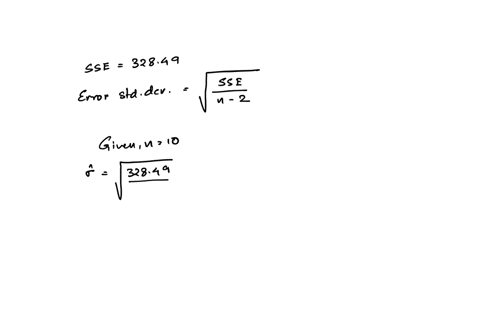 SSE = 328.49
Error std.dev. = √(SSE / n - 2)
Given, n = 10
σ̂ = √328.49